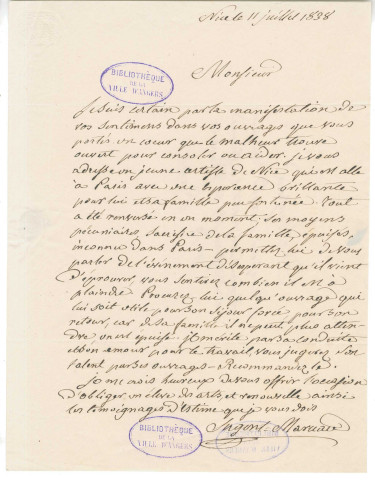 Nice le 11 juillet 1838
BIBLIOTHÈQUE
DE LA
VILLE D'ANGERS
Monsieur
Je suis certain par la manifestation de
vos sentimens dans vos ouvrages que vous
portés un cœur que le malheur trouve
ouvert pour consoler ou aider. je vous
adresse un jeune artiste de Nice qui est allé
à Paris avec une espérance brillante
pour lui et sa famille peu fortunée. Tout
a été renversé en un moment; ses moyens
pécuniaires, sacrifice de la famille, épuisés,
inconnu dans Paris - permettez lui de vous
parler de l'évènement désesperant qu'il vient
d'éprouver, vous sentirez combien il est à
plaindre Procurez lui quelqu'ouvrage qui
lui soit utile pour son séjour forcé pour son
retour, car de sa famille il ne peut plus atten-
dre, tout est épuisé. il mérite par sa conduite
et son amour pour le travail, vous jugerez s'on
talent par ses ouvrages
Je me crois heureux de vous offrir l'occasion
d'obliger un élève des arts, et renouvelle ainsi
les témoignages d'estime que je vous dois
BIBLIOTHÈQUE
DE LA
VILLE D'ANGERS